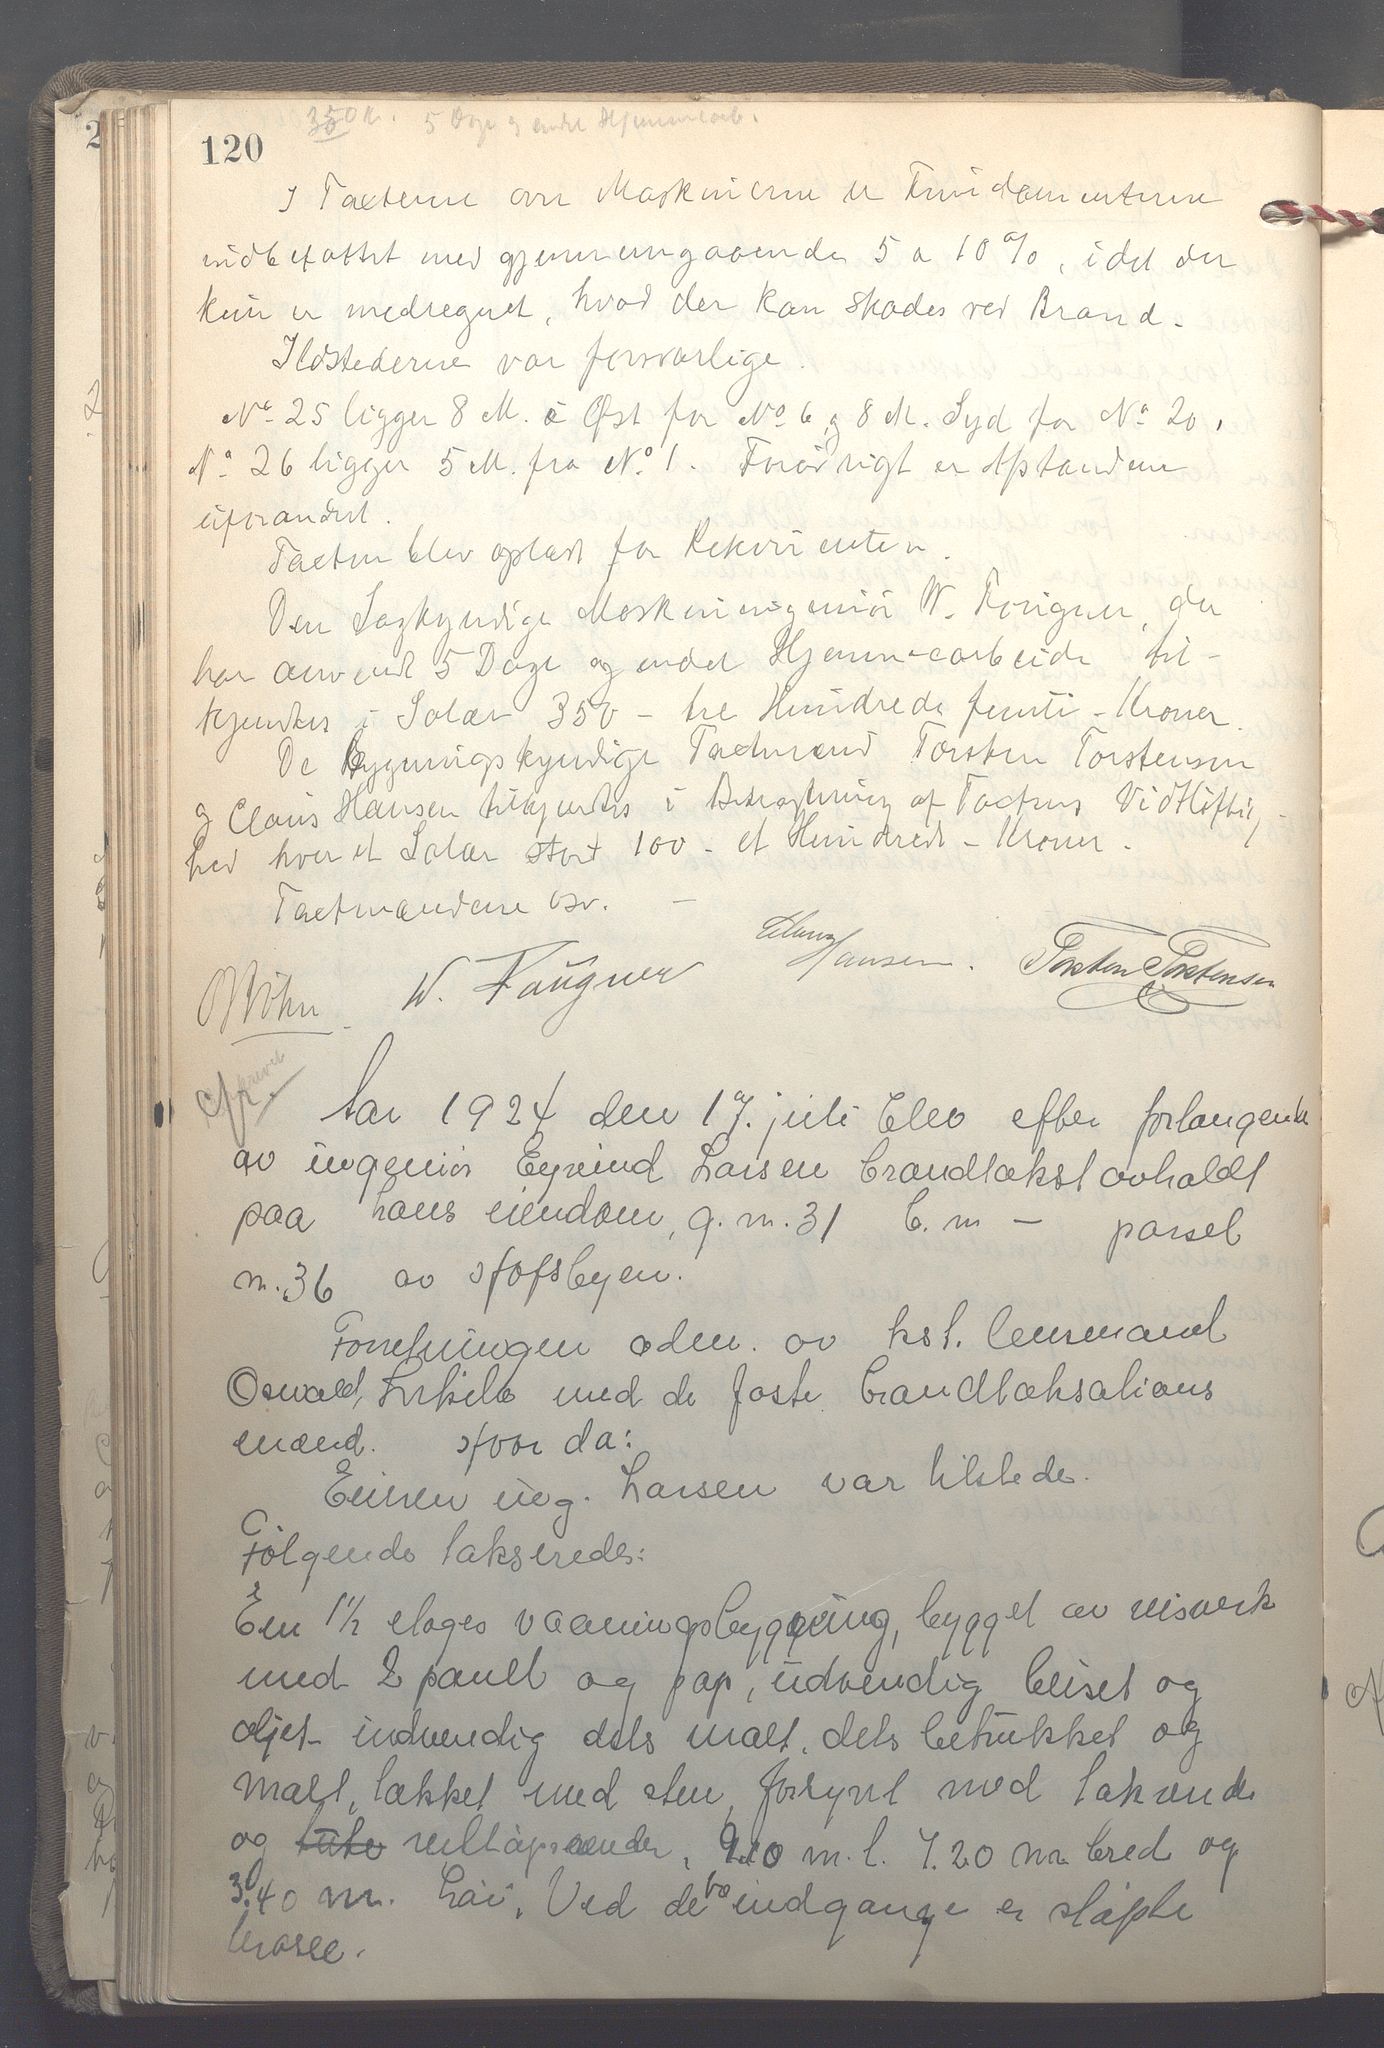 350 Kr. 5 Dage og endel Hjemmearb.
120
I Taxterne over Maskinerne er Fundamenterne
indbefattet med gjennemgaaende 5 a 10 %, idet der
kun er medregnet, hvad der kan skades ved Brand.
Ildstederne var forsvarlige.
No 25 ligger 8 M. i Øst for No 6 og 8 M. Syd for No 20,
No 26 ligger 5 M. fra No 1. Forøvrigt er Afstandene
uforandret.
Taxten blev oplæst for Rekvirenten.
Den Sagkyndige Maskiningeniør W. Faugner, der
har anvendt 5 Dage og endel Hjemmearbeide til-
kjendtes i Salær 350 - tre Hundrede femti - Kroner.
De bygningskyndige Taxtmænd Torsten Torstensen
og Claus Hansen tilkjendtes i Betragtning af Taxtens Vidtløftig-
hed hver et Salær stort 100 - et Hundrede - Kroner.
Taxtmændene osv. -
W. Faugner
Claus
Hansen.
Torsten Torstensen
Afskrevet
Aar 1924 den 17. juli blev efter forlangende
av ingeniør Eyvind Larsen brandtakst avholdt
paa hans eiendom, g. nr. 31 b. nr - parsel
nr. 36 av Hofsbyen.
Forretningen adm. av kst. lensmand
Oswald med de faste brandtaksations
mænd. Hvor da:
Eieren ing. Larsen var tilstede.
Følgende takseredes:
En 1½ etages vaaningsbygning, bygget av reisverk
med 2 panel og pap, utvendig beiset og
oljet indvendig dels malt, dels betrukket og
malt, tækket med sten, forsynt med takrende
og nedløpsrender, 9.10 m. l. 7.20 m bred og
3.40 m. høi. Ved de to indgange er støpte
trapper.